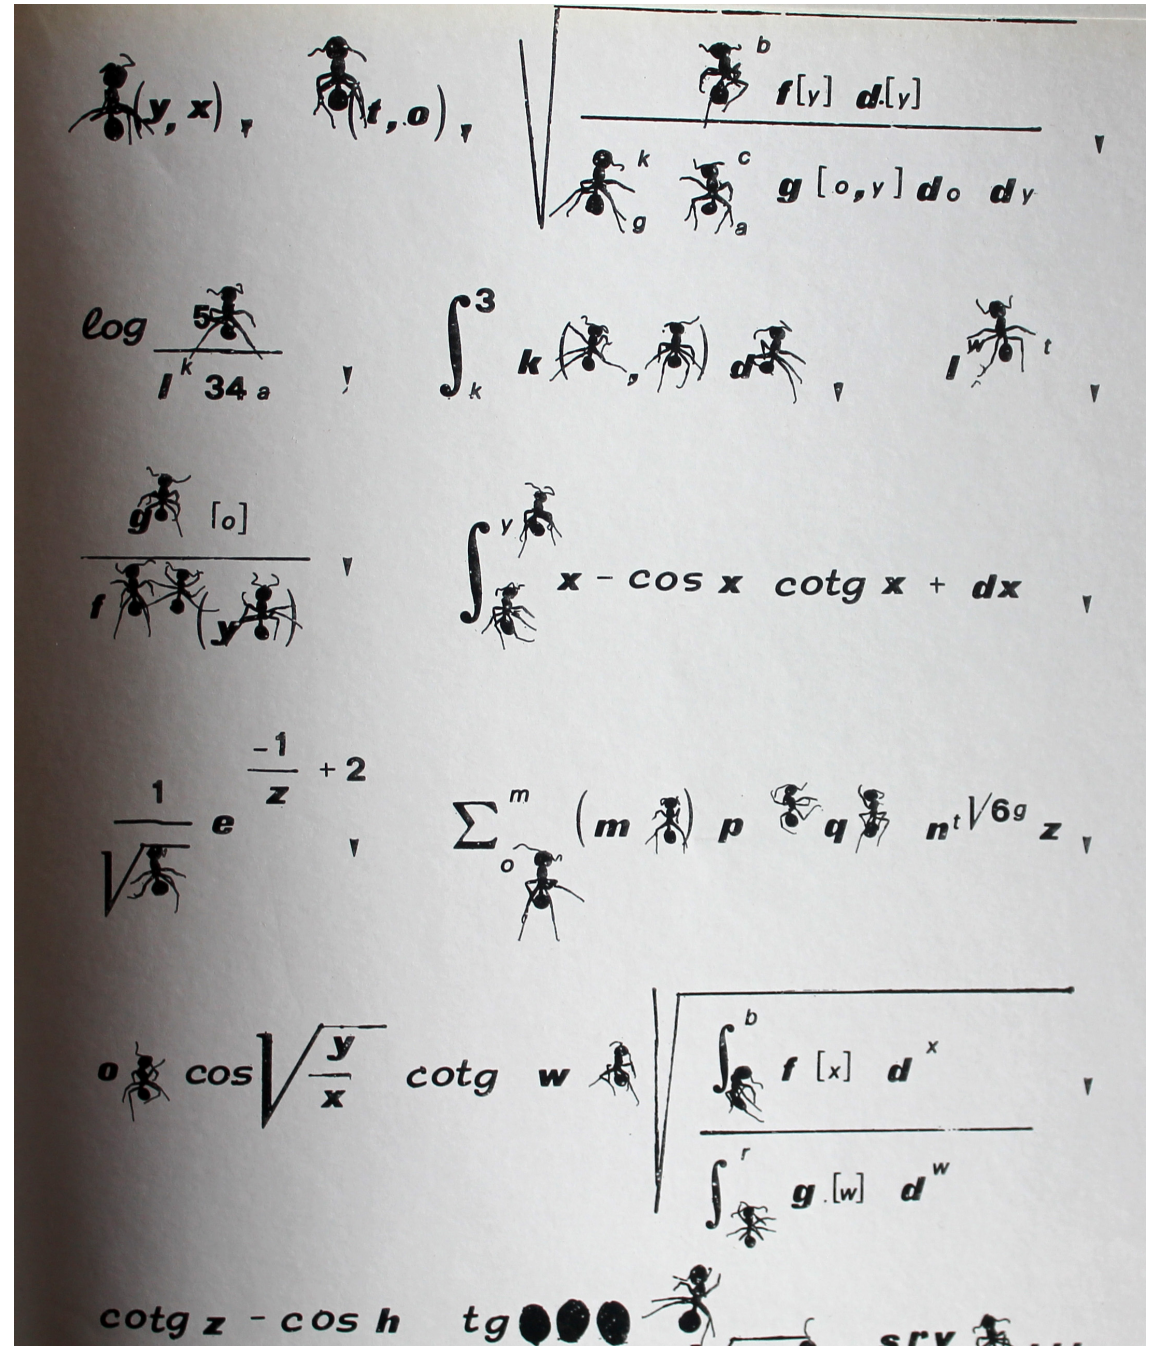 (y, x) , (t, o) , √ b f[y] d.[y] ,
k g c a g [o,y] do dy
log 5 , ∫ 3 k k ( , ) d , l w t ,
l k 34 a
g [o] , ∫ y x - cos x cotg x + dx ,
f (y )
1 e -1 + 2 , Σ m o (m ) p q n t √6g z ,
√ z
o cos √ y cotg w √ ∫ b f [x] d x ,
x ∫ r g .[w] d w
cotg z - cos h tg